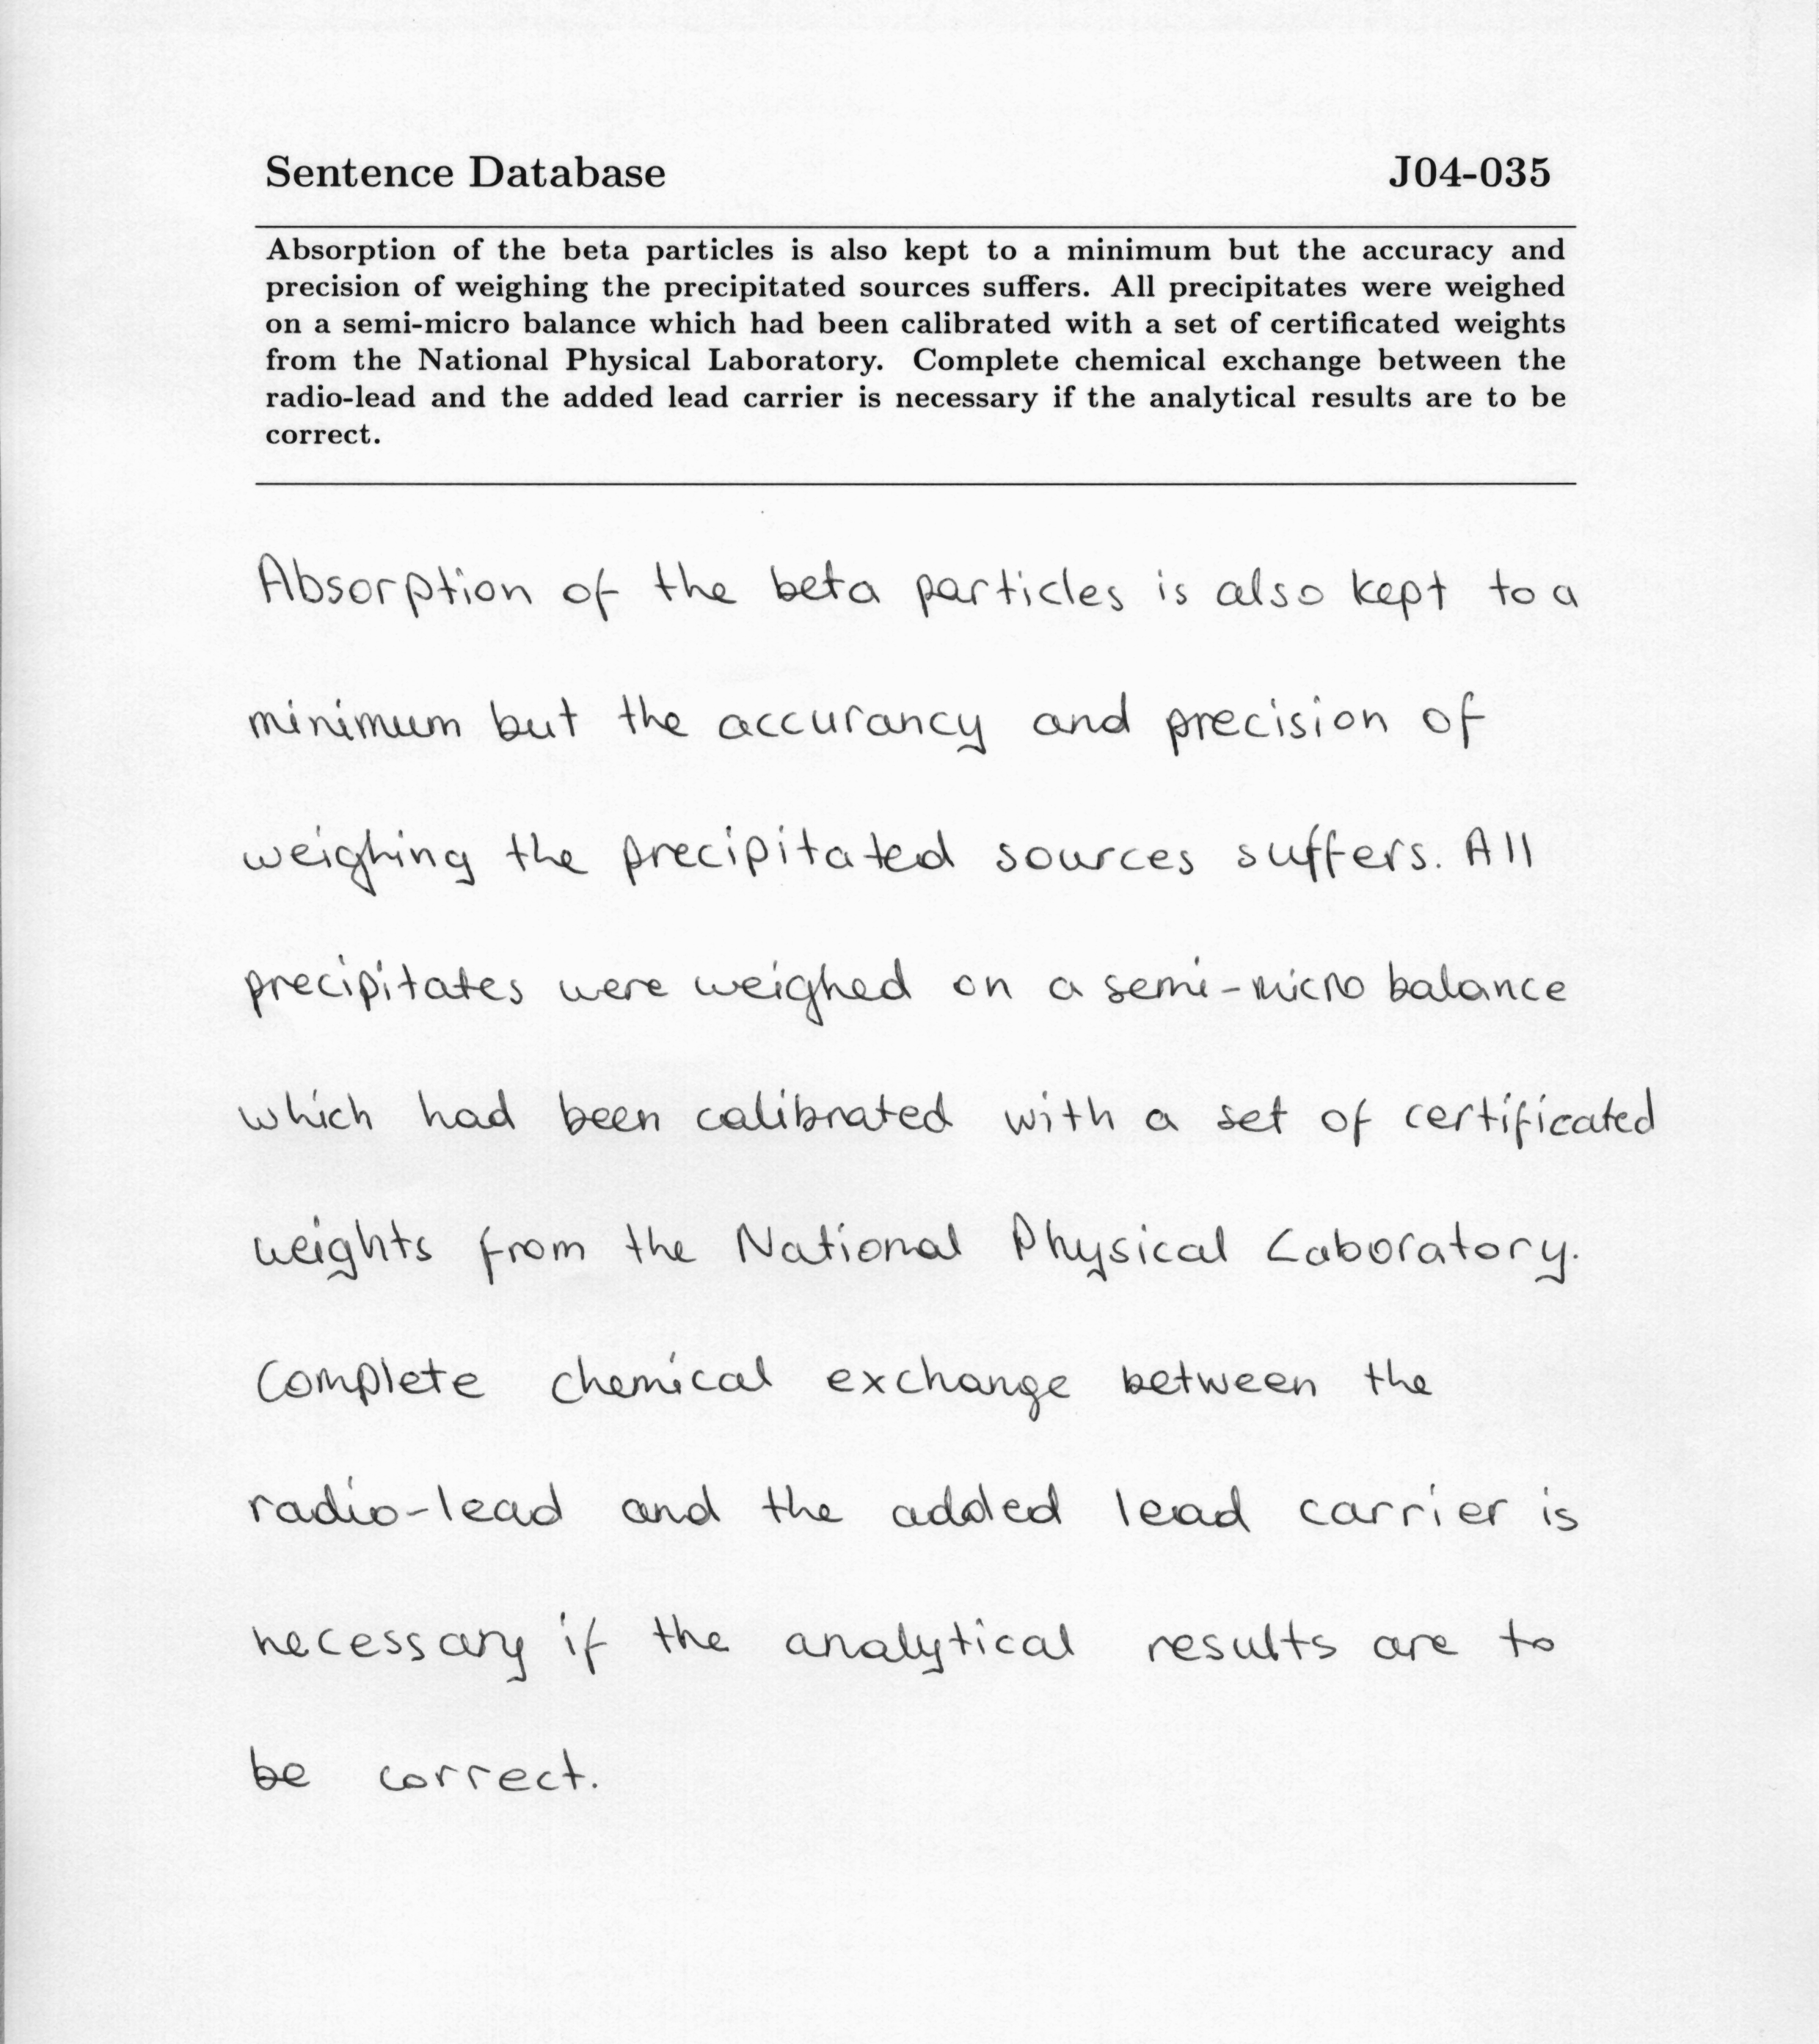 Sentence Database J04-035
Absorption of the beta particles is also kept to a minimum but the accuracy and
precision of weighing the precipitated sources suffers. All precipitates were weighed
on a semi-micro balance which had been calibrated with a set of certificated weights
from the National Physical Laboratory. Complete chemical exchange between the
radio-lead and the added lead carrier is necessary if the analytical results are to be
correct.
Absorption of the beta particles is also kept to a
minimum but the accurancy and precision of
weighing the precipitated sources suffers. All
precipitates were weighed on a semi-micro balance
which had been calibrated with a set of certificated
weights from the National Physical Laboratory.
Complete chemical exchange between the
radio-lead and the added lead carrier is
necessary if the analytical results are to
be correct.